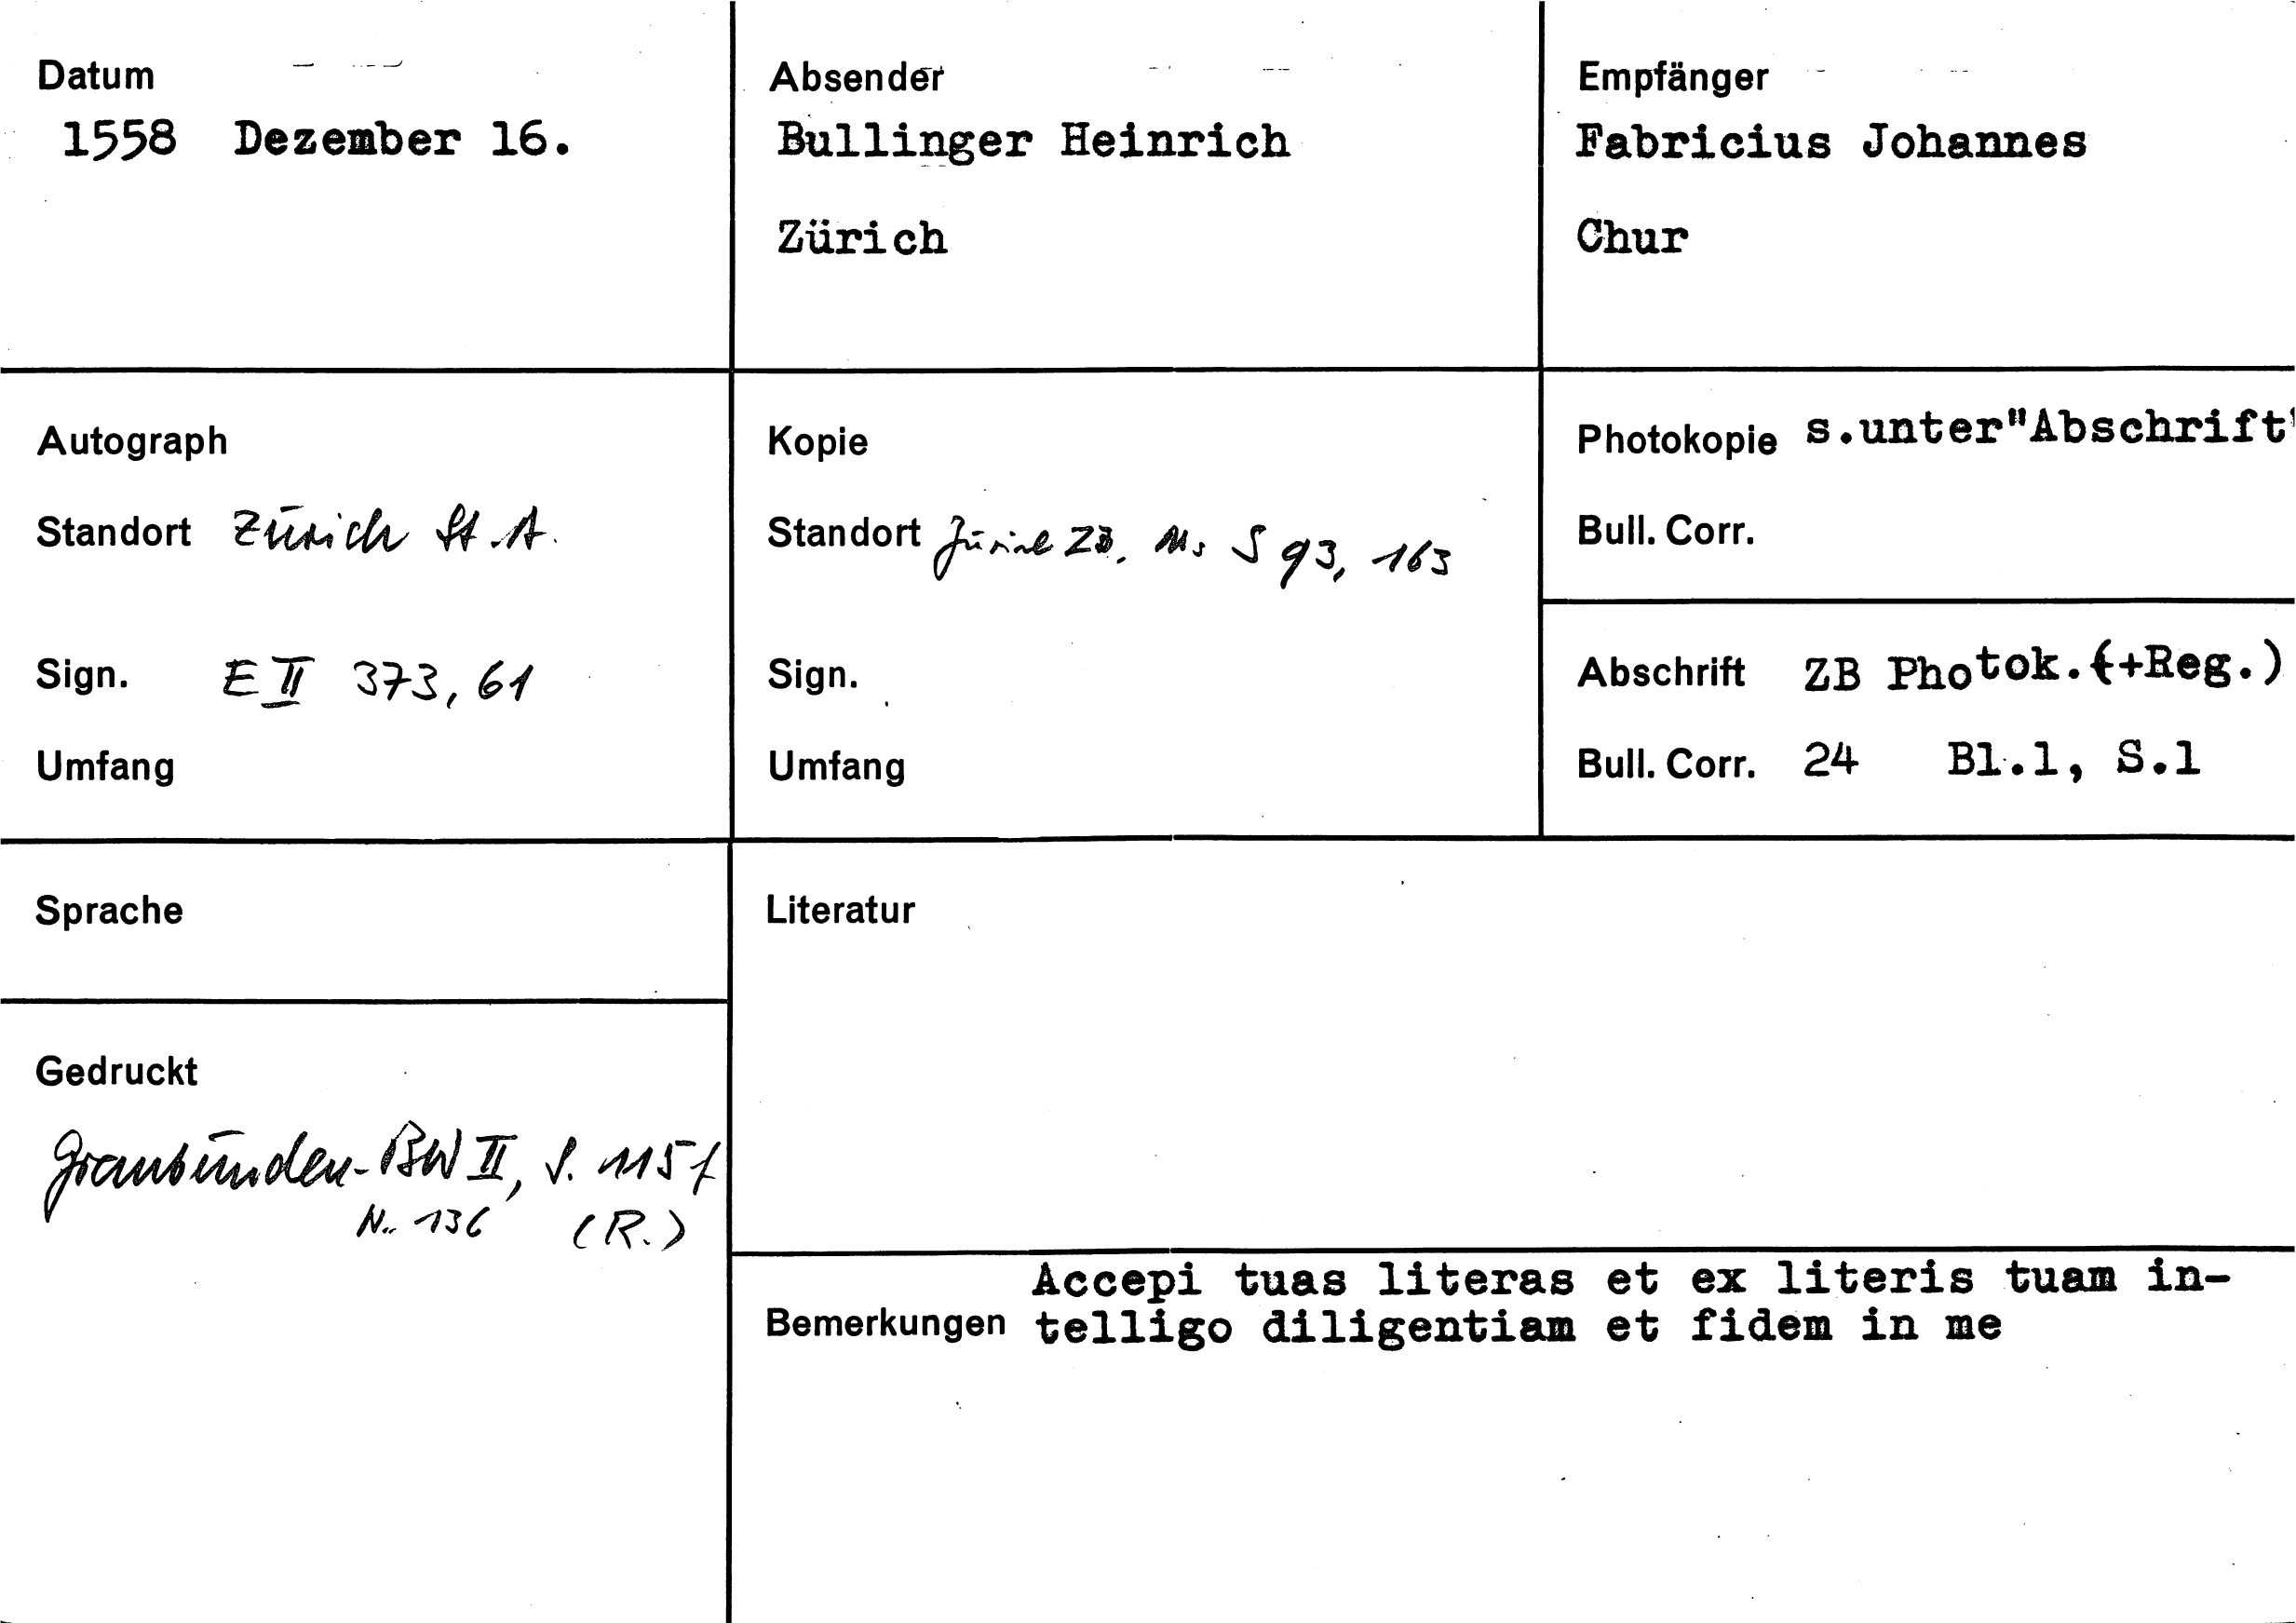 Datum
1558 Dezember 16.
Absender
Bullinger Heinrich
Zürich
Empfänger
Fabricius Johannes
Chur
Autograph
Standort Zürich St.A.
Sign. E II 373, 61
Umfang
Kopie
Standort Zürich ZB, Ms S 93, 163
Sign.
Umfang
Photokopie s.unter"Abschrift"
Bull. Corr.
Abschrift ZB Photok.(+Reg.)
Bull. Corr. 24 Bl.1, S.1
Sprache
Gedruckt
Graubünden-BW II, S. 115f
Nr. 136 (R.)
Literatur
Bemerkungen
Accepi tuas literas et ex literis tuam in-
telligo diligentiam et fidem in me